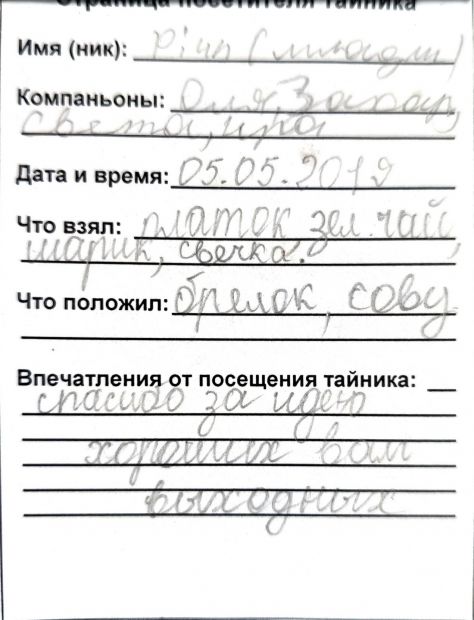 Страница посетителя тайника
Имя (ник):
Компаньоны: Оля, Захар,
Света, Ира
Дата и время: 05.05.2019
Что взял: платок зел. чай,
шарик, свечка.
Что положил: брелок, сову
Впечатления от посещения тайника:
спасибо за идею
хороших вам
выходных